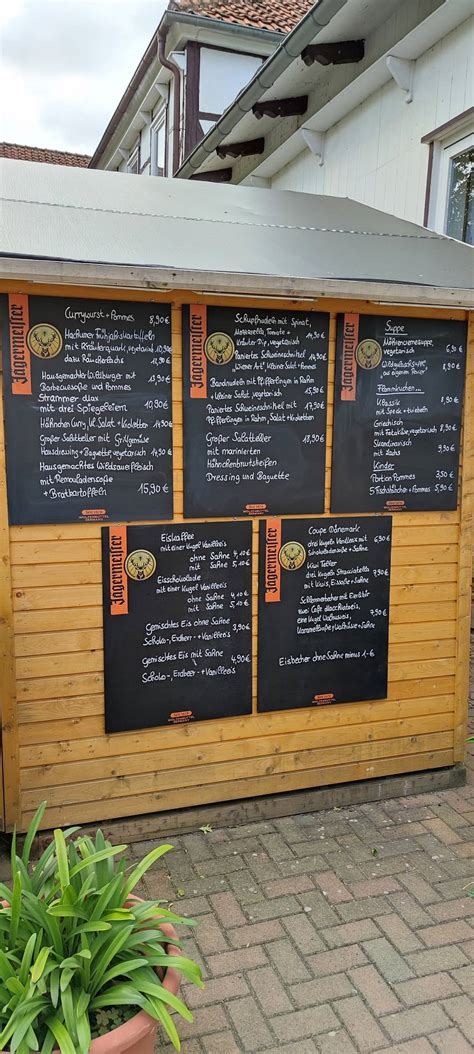 Jägermeister
Currywurst + Pommes 8,90 €
mit Kräuterquark, vegetarisch
dazu Räucherlachs
Hausgemachter Wildburger mit
Barbecuesoße und Pommes 13,90 €
Strammer Max
mit drei Spiegeleiern 10,90 €
Hähnchen Curry, kl. Salat + Kroketten
Großer Salatteller mit Grillgemüse
Hausdressing + Baguette
vegetarisch
Hausgemachtes Wildsauerfleisch
mit Remouladensoße
+ Bratkartoffeln 15,90 €
Jägermeister
Schupfnudeln mit Spinat,
Mozzarella, Tomate +
Kräuter Dip, vegetarisch
Paniertes Schweineschnitzel
"Wiener Art" kleiner Salat + Pommes
Bandnudeln mit Pfifferlingen in Rahm
+ kleiner Salat, vegetarisch
Paniertes Schweineschnitzel mit
Pfifferlingen in Rahm, Salat + Kroketten
Großer Salatteller
mit marinierten
Hähnchenbrutsteifen
Dressing und Baguette
Jägermeister
Suppe
Möhrencremesuppe,
vegetarisch
Flammkuchen...
Klassik
mit Speck + Zwiebeln
Griechisch
mit Fetakäse, vegetarisch 8,90 €
Skandinavisch
mit Lachs
Kinder
Portion Pommes 3,50 €
5 Fischstäbchen + Pommes 5,90 €
Jägermeister
Eiskaffee
mit einer Kugel Vanilleeis
ohne Sahne 4,10 €
mit Sahne 5,10 €
Eisschokolade
mit einer Kugel Vanilleeis
ohne Sahne 4,40 €
mit Sahne 5,40 €
gemischtes Eis ohne Sahne 3,90 €
Schoko-, Erdbeer- + Vanilleeis
gemischtes Eis mit Sahne 4,90 €
Schoko-, Erdbeer- + Vanilleeis
Jägermeister
Coupe Dänemark
drei Kugeln Vanilleeis mit
Schokoladensoße + Sahne 6,90 €
Kiwi Teller
drei Kugeln Stracciatella
mit Kiwis, Eissoße + Sahne 7,50 €
Schlemmerbecher mit Eierlikör
eine Kugel Walnusseis, 7,90 €
Karamellsoße, Walnüsse + Sahne
Eisbecher ohne Sahne minus 1,- €